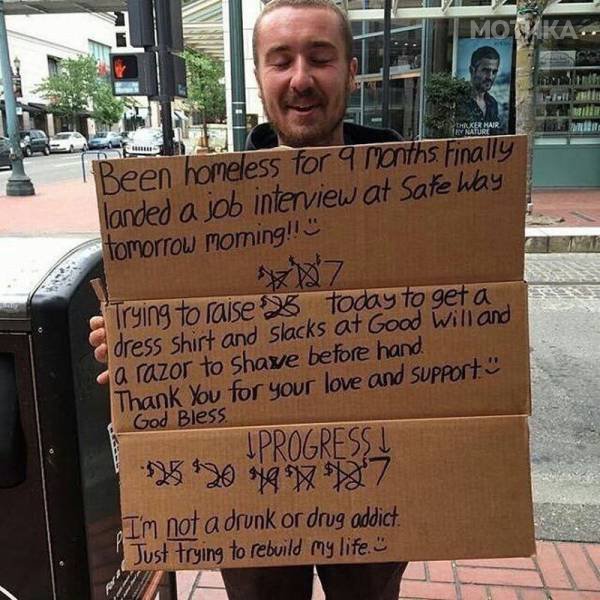 МОТИКА
THICKER HAIR
BY NATURE
Been homeless for 9 months. Finally
landed a job interview at Safe Way
tomorrow morning!!
7
Trying to raise $25 today to get a
dress shirt and slacks at Good Will and
a razor to shave before hand.
Thank You for your love and support.
God Bless
↓PROGRESS↓
$25 $20 $19 $17 $12 7
I'm not a drunk or drug addict.
Just trying to rebuild my life.